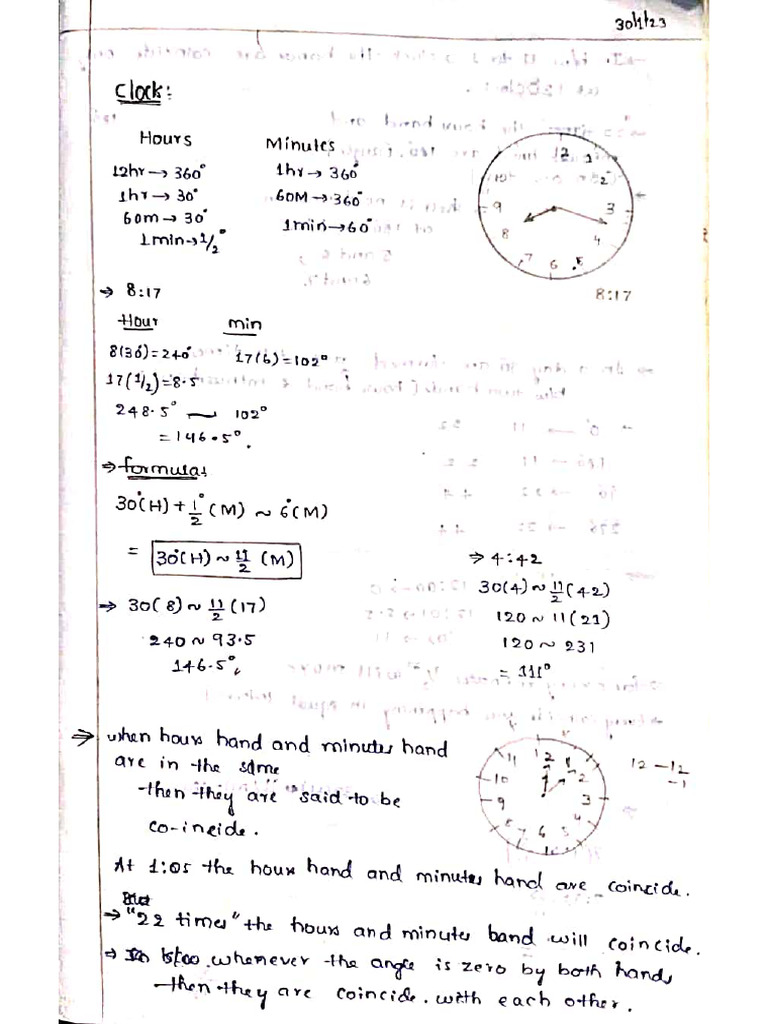 30/1/23
Clock:
Hours
12hr → 360°
1hr → 30°
60m → 30°
1min → 1/2°
Minutes
1hr → 360°
60M → 360°
1min → 60°
12
1
2
3
4
5
6
7
8
9
10
8:17
→ 8:17
Hour min
8(30) = 240° 17(6) = 102°
17(1/2) = 8.5
248.5° ~ 102°
= 146.5°.
→ formula:
30°(H) + 1/2°(M) ~ 6°(M)
= 30°(H) ~ 11/2 (M)
→ 30(8) ~ 11/2 (17)
240 ~ 93.5
146.5°
→ 4:42
30(4) ~ 11/2 (42)
120 ~ 11(21)
120 ~ 231
= 111°
→ when hours hand and minutes hand
are in the same
then they are said to be
co-incide.
11
12
1
2
3
4
5
6
7
8
9
10
12 - 12
-1
At 1:05 the hour hand and minutes hand are coincide.
→ "22 times" the hours and minutes hand will coincide.
→ whenever the angle is zero by both hands
then they are coincide. with each other.